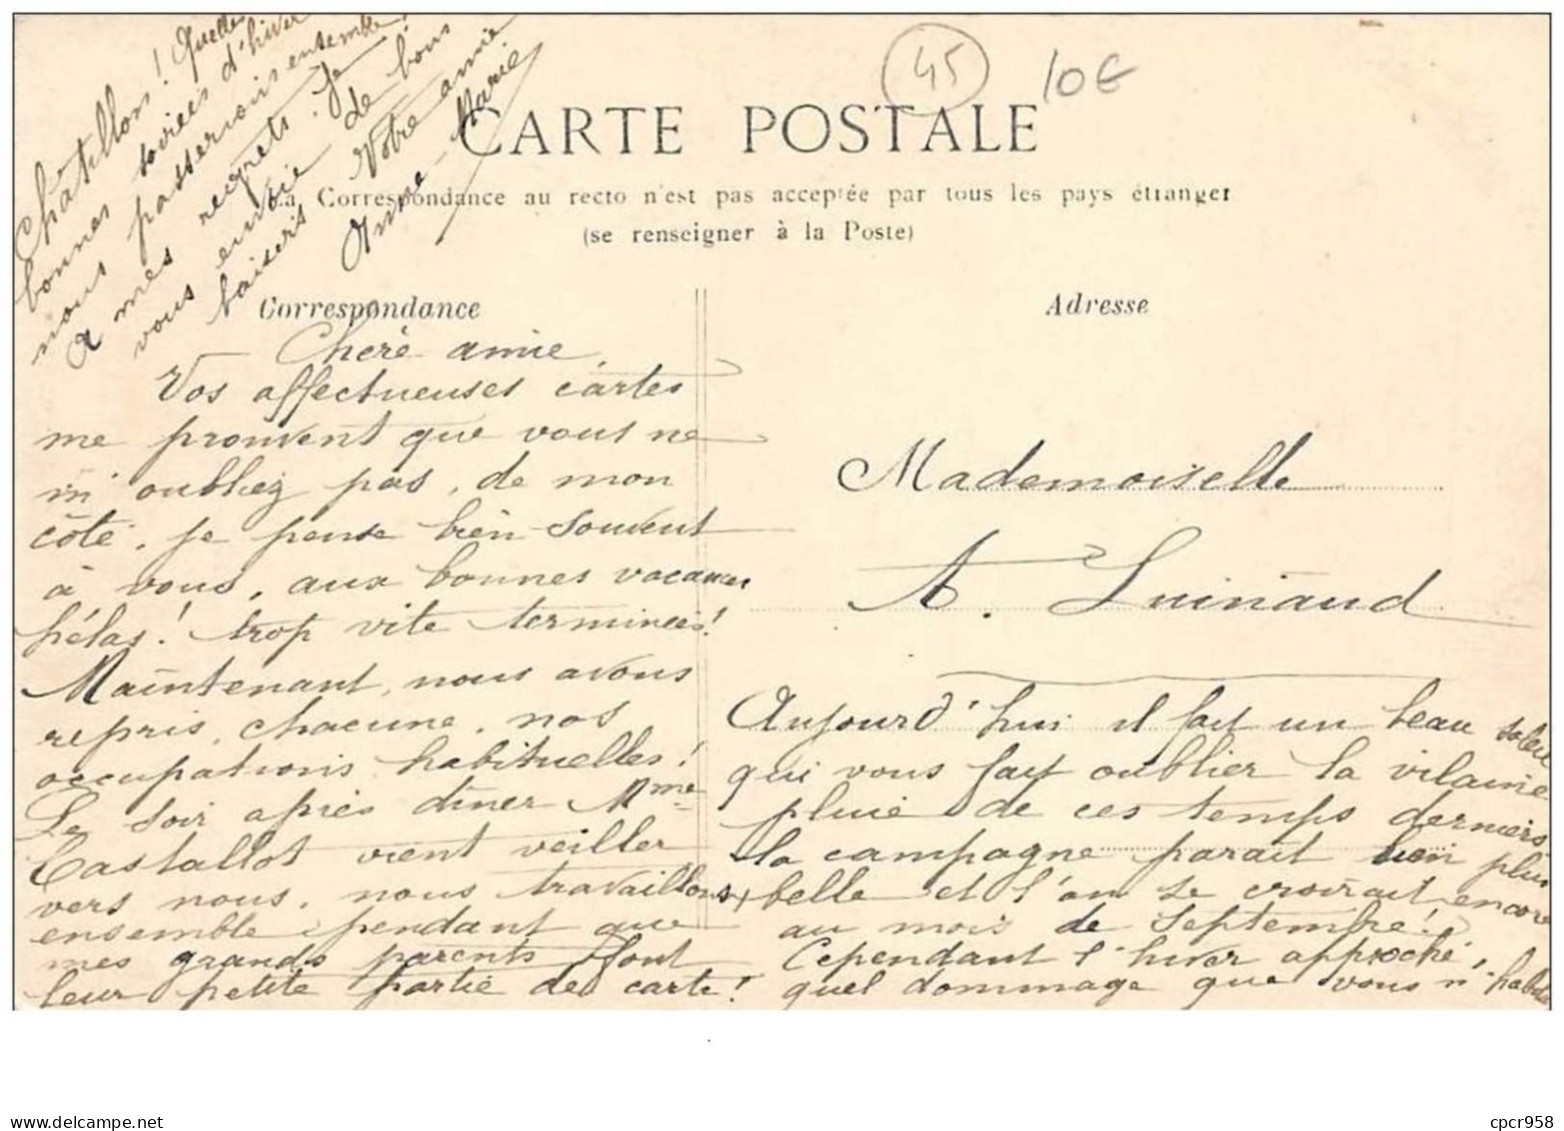 45
10€
CARTE POSTALE
La Correspondance au recto n'est pas acceptée par tous les pays étranger
(se renseigner à la Poste)
Correspondance
Adresse
Chère amie,
Vos affectueuses cartes
me prouvent que vous ne
m'oubliez pas, de mon
côté, je pense bien souvent
à vous, aux bonnes vacances
hélas! trop vite terminées!
Maintenant, nous avons
repris, chacune, nos
occupations habituelles!
Le soir après dîner Mme
Castallot vient veiller
vers nous, nous travaillons
ensemble pendant que
mes grands parents font
leur petite partie de carte!
Mademoiselle
A. Luinaud
Aujourd'hui il fait un beau soleil
qui vous fait oublier la vilaine
pluie de ces temps derniers
la campagne parait bien plus
belle et l'on se croirait encore
au mois de Septembre!
Cependant l'hiver approche,
quel dommage que vous n'habitez
Châtillon! Quelles
bonnes soirées d'hiver
nous passerions ensemble!
A mes regrets. Je
vous envoie de bons
baisers
Votre amie
Anne-Marie
cpcr958
www.delcampe.net